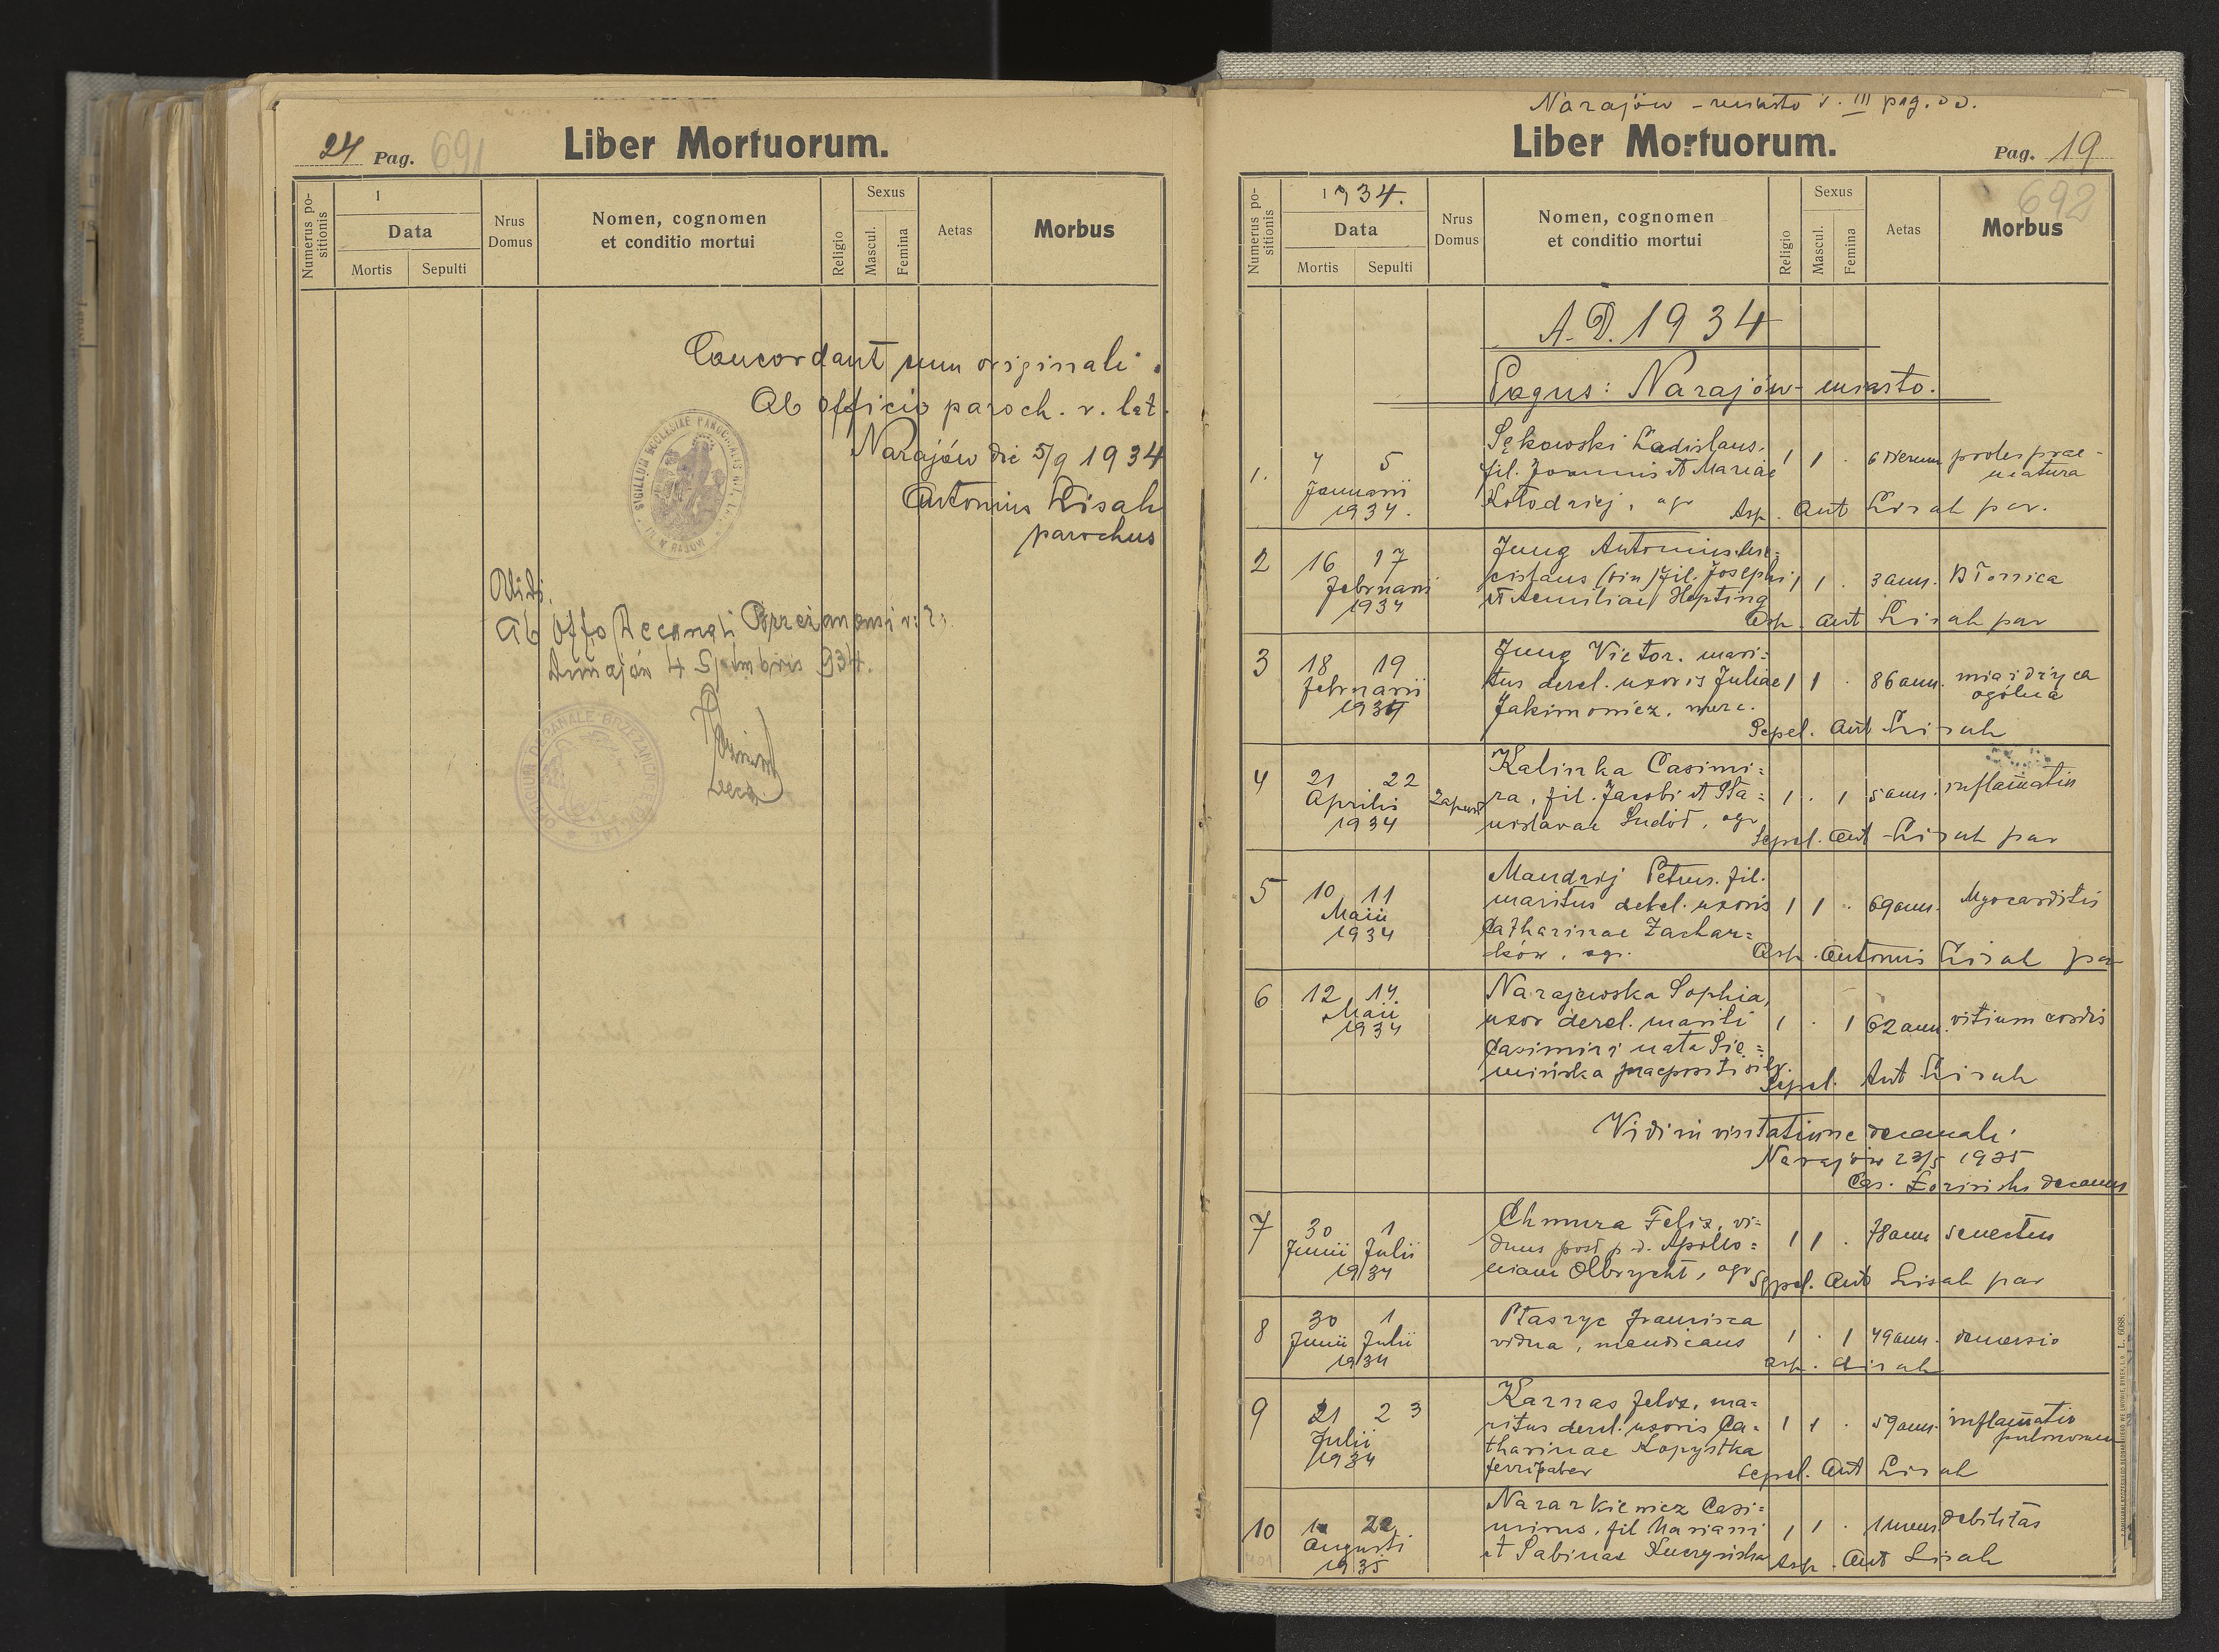 24 Pag. 691
Liber Mortuorum.
Numerus positionis
1
Data
Mortis Sepulti
Nrus Domus
Nomen, cognomen
et conditio mortui
Religio
Sexus
Mascul. Femina
Aetas
Morbus
Concordant cum originali.
Ab officio paroch. r. lat.
Narajów die 5/9 1934
Antonius Lisak
parochus
Vidi.
Ab Offo Decanali
934.
Narajów - miasto t. III pag.
Liber Mortuorum.
Pag. 19
692
Numerus po-
sitionis
1934.
Data
Mortis Sepulti
Nrus
Domus
Nomen, cognomen
et conditio mortui
Religio
Sexus
Mascul. Femina
Aetas
Morbus
A.D. 1934
Pagus: Narajów-miasto.
Sękowski Ladislaus,
1. 4 5 fil. Joannis et Mariae 1 1 . 6 dierum proles prae-
matura
Januarii Kołodziej, agr
1934. Asp. Ant Lisak par.
Jung Antonius
2 16 17 fil. Josephi 1 1 . 3 ann. Błonica
Februarii et Aemiliae Hepting
1934 Asp. Ant Lisak par
Jung Victor. mari=
3 18 19 tus derel. uxoris Juliae 1 1 . 86 ann. miażdżyca
ogólna
Februarii Jakimowicz. merc.
1934 Sepel. Ant Lisak
Kalinka Casimi=
4 21 22 ra, fil. Jacobi et Sta= 1 . 1 5 ann. inflamatio
Aprilis nislavae Sudoł, agr
1934 Sepel. Ant Lisak par
Mandzij Petrus. fil.
5 10 11 maritus derel. uxoris 1 1 . 69 ann. Myocarditis
Maii Catharinae Zachar=
1934 ków, agr. Asp. Antonius Lisak par
6 12 14. Narajewska Sophia,
Maii uxor derel. mariti 1 . 1 62 ann. vitium cordis
1934 Casimiri nata Sie=
mińska praepositi silv.
Sepel. Ant Lisak
Vidi in visitatione decanali
Narajów 23/5 1935
Cas. decanus
7 30 1 Chmura Felix, vi=
Junii Julii duus post p.d. Apollo= 1 1 . 78 ann senectus
1934 niam Olbrycht, agr Sepel. Ant Lisak par
8 30 1 Ptaszyc Francisca
Junii Julii vidua, mendicans 1 . 1 49 ann. demersio
1934 Asp. Lisak
Karnas Felix, ma=
9 21 23 ritus derel. uxoris Ca= 1 1 . 59 ann. inflamatio
pulmonum
Julii tharinae Kopystka
1934 ferrifaber Sepel. Ant Lisak
Nazarkiewicz Casi=
10 mirus, fil Mariani 1 1 . 1 mens debilitas
Augusti et Sabinae Kuczyńska
1935 Asp. Ant Lisak